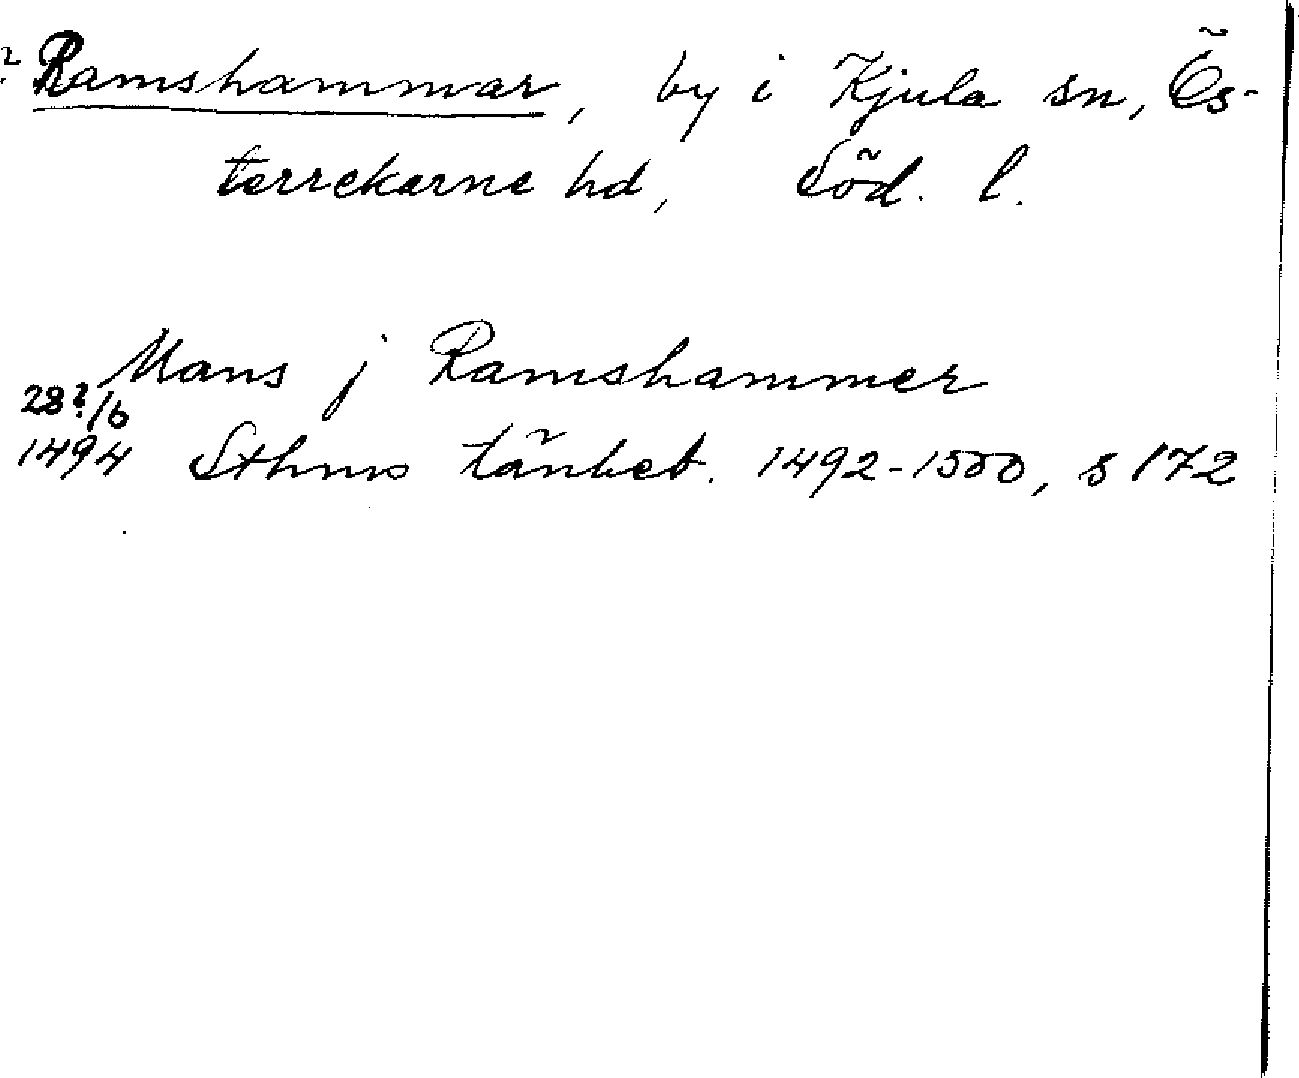 ? Ramshammar, by i Kjula sn, Ös-
terrekarne hd, Söd. l.
Mans j Ramshammer
28?/6
1494 Sthms tänkeb. 1492-1500, s 172